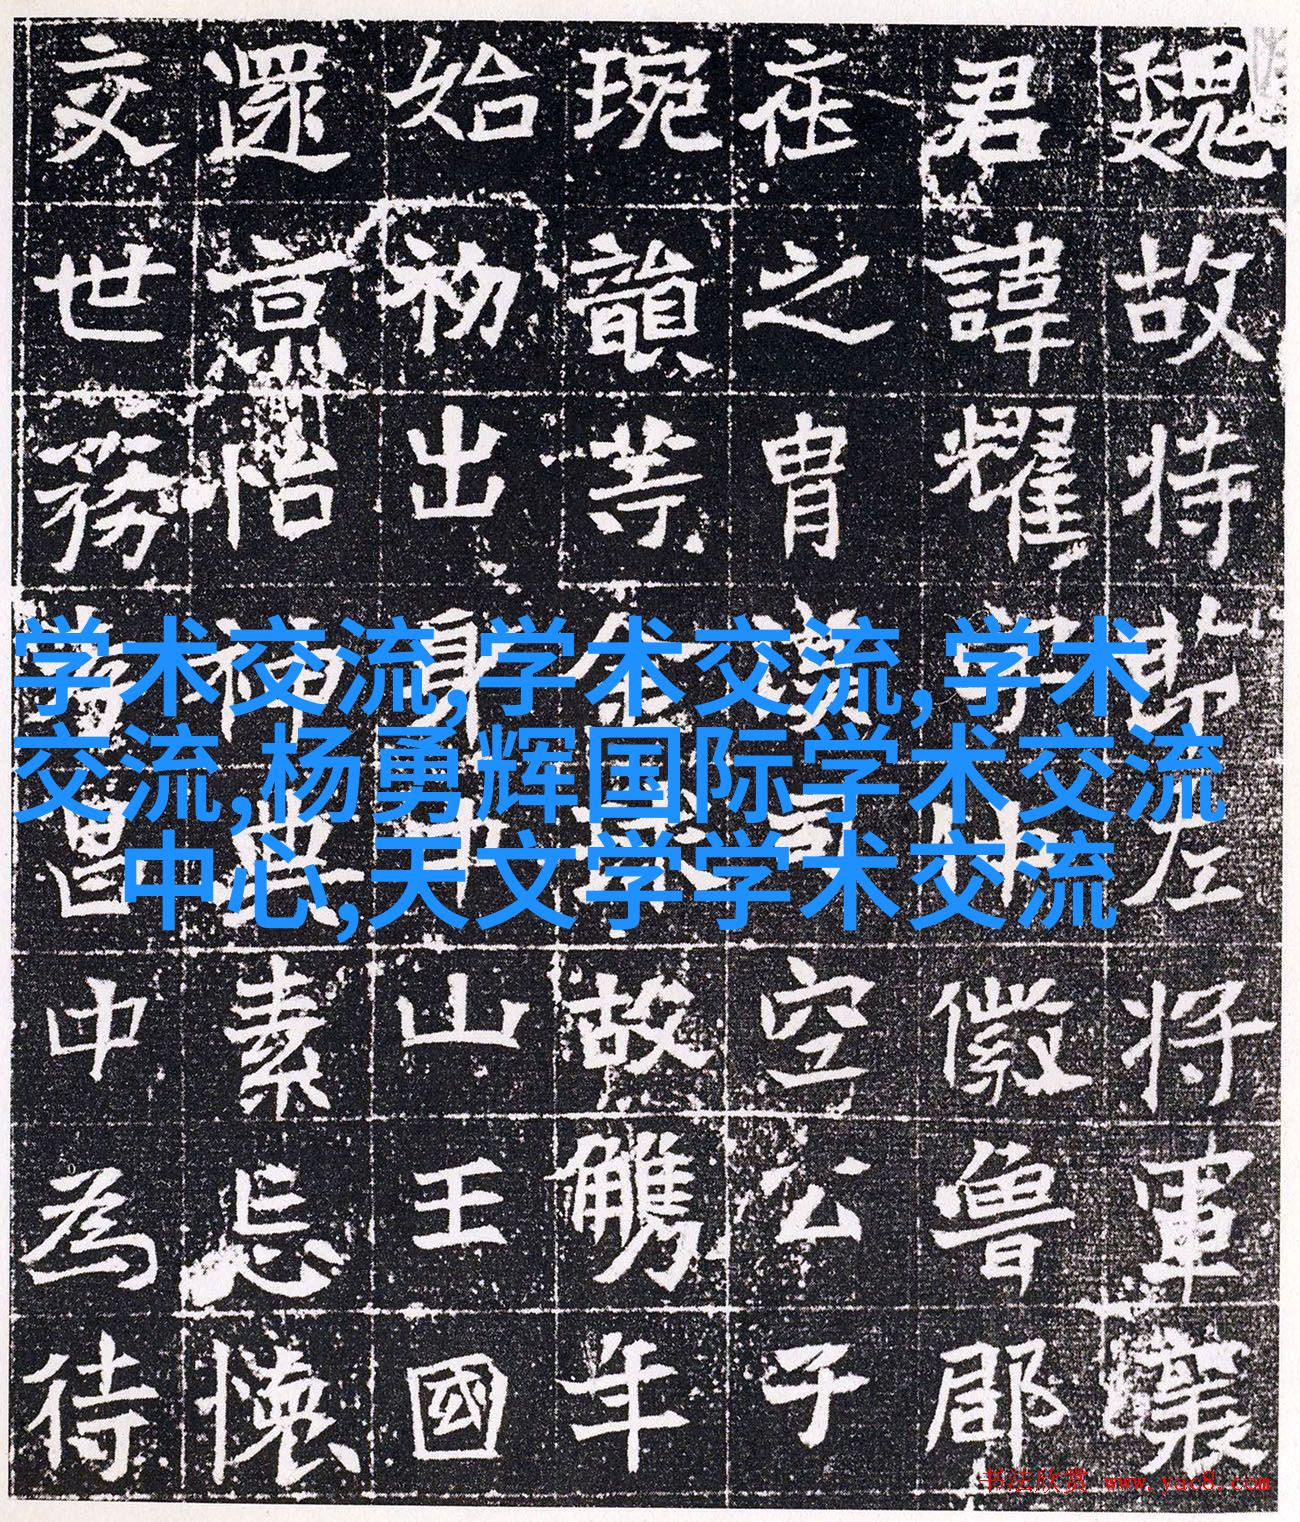 魏故持節左將軍襄
君諱耀字徽魯郡
在之胄司空公子
琬韻等故觿年
始初出身中山王國
還京怡神典素忘懷
交世務中為待
学术交流,学术交流,学术
交流,杨勇辉国际学术交流
中心,天文学学术交流
书法欣赏 www.yac8.com